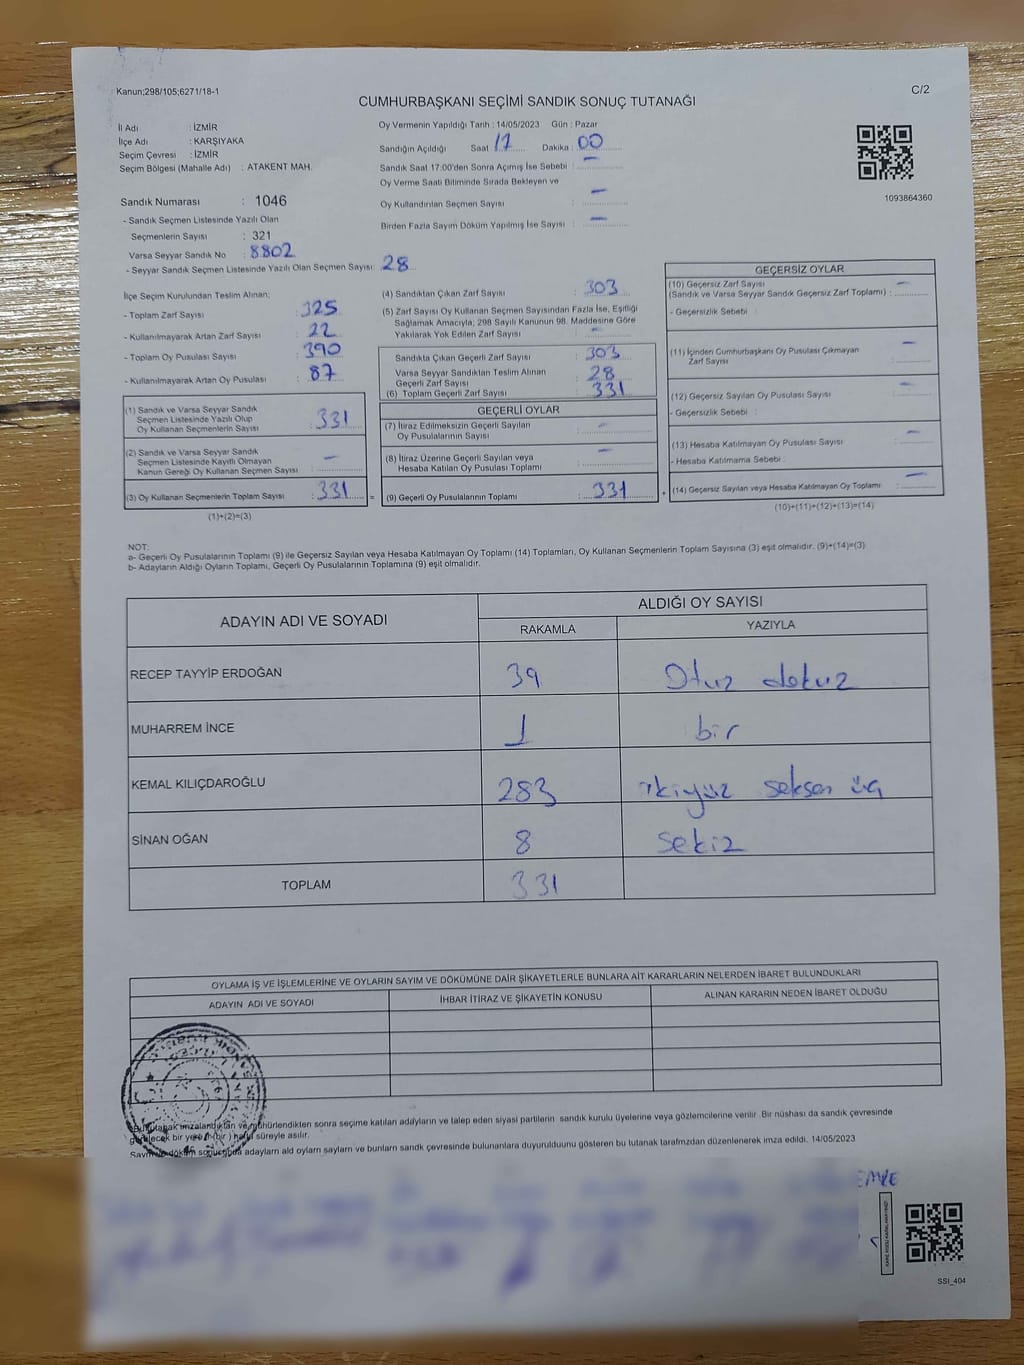 Kanun;298/105;6271/18-1
C/2
CUMHURBAŞKANI SEÇİMİ SANDIK SONUÇ TUTANAĞI
İl Adı : İZMİR
İlçe Adı : KARŞIYAKA
Seçim Çevresi : İZMİR
Seçim Bölgesi (Mahalle Adı) : ATAKENT MAH.
Oy Vermenin Yapıldığı Tarih : 14/05/2023 Gün : Pazar
Sandığın Açıldığı Saat 17 Dakika : 00
Sandık Saat 17:00'den Sonra Açımış İse Sebebi : —
Oy Verme Saati Bitiminde Sırada Bekleyen ve
Oy Kullandırılan Seçmen Sayısı : —
Birden Fazla Sayım Döküm Yapılmış İse Sayısı : —
1093864360
Sandık Numarası : 1046
- Sandık Seçmen Listesinde Yazılı Olan
Seçmenlerin Sayısı : 321
Varsa Seyyar Sandık No : 8802
- Seyyar Sandık Seçmen Listesinde Yazılı Olan Seçmen Sayısı: 28
İlçe Seçim Kurulundan Teslim Alınan;
- Toplam Zarf Sayısı : 325
- Kullanılmayarak Artan Zarf Sayısı : 22
- Toplam Oy Pusulası Sayısı : 390
- Kullanılmayarak Artan Oy Pusulası : 87
(1) Sandık ve Varsa Seyyar Sandık
Seçmen Listesinde Yazılı Olup
Oy Kullanan Seçmenlerin Sayısı : 331
(2) Sandık ve Varsa Seyyar Sandık
Seçmen Listesinde Kayıtlı Olmayan
Kanun Gereği Oy Kullanan Seçmen Sayısı : —
(3) Oy Kullanan Seçmenlerin Toplam Sayısı : 331 =
(1)+(2)=(3)
(4) Sandıktan Çıkan Zarf Sayısı : 303
(5) Zarf Sayısı Oy Kullanan Seçmen Sayısından Fazla İse, Eşitliği
Sağlamak Amacıyla; 298 Sayılı Kanunun 98. Maddesine Göre
Yakılarak Yok Edilen Zarf Sayısı : —
Sandıkta Çıkan Geçerli Zarf Sayısı : 303
Varsa Seyyar Sandıktan Teslim Alınan
Geçerli Zarf Sayısı : 28
(6) Toplam Geçerli Zarf Sayısı : 331
GEÇERLİ OYLAR
(7) İtiraz Edilmeksizin Geçerli Sayılan
Oy Pusulalarının Sayısı : —
(8) İtiraz Üzerine Geçerli Sayılan veya
Hesaba Katılan Oy Pusulası Toplamı : —
(9) Geçerli Oy Pusulalarının Toplamı : 331 +
GEÇERSİZ OYLAR
(10) Geçersiz Zarf Sayısı
(Sandık ve Varsa Seyyar Sandık Geçersiz Zarf Toplamı) : —
- Geçersizlik Sebebi :
(11) İçinden Cumhurbaşkanı Oy Pusulası Çıkmayan
Zarf Sayısı : —
(12) Geçersiz Sayılan Oy Pusulası Sayısı : —
- Geçersizlik Sebebi :
(13) Hesaba Katılmayan Oy Pusulası Sayısı : —
- Hesaba Katılmama Sebebi :
(14) Geçersiz Sayılan veya Hesaba Katılmayan Oy Toplamı : —
(10)+(11)+(12)+(13)=(14)
NOT:
a- Geçerli Oy Pusulalarının Toplamı (9) ile Geçersiz Sayılan veya Hesaba Katılmayan Oy Toplamı (14) Toplamları, Oy Kullanan Seçmenlerin Toplam Sayısına (3) eşit olmalıdır. (9)+(14)=(3)
b- Adayların Aldığı Oyların Toplamı, Geçerli Oy Pusulalarının Toplamına (9) eşit olmalıdır.
ADAYIN ADI VE SOYADI ALDIĞI OY SAYISI
RAKAMLA YAZIYLA
RECEP TAYYİP ERDOĞAN 39 Otuz dokuz
MUHARREM İNCE 1 bir
KEMAL KILIÇDAROĞLU 283 ikiyüz seksen üç
SİNAN OĞAN 8 sekiz
TOPLAM 331
OYLAMA İŞ VE İŞLEMLERİNE VE OYLARIN SAYIM VE DÖKÜMÜNE DAİR ŞİKAYETLERLE BUNLARA AİT KARARLARIN NELERDEN İBARET BULUNDUKLARI
ADAYIN ADI VE SOYADI İHBAR İTİRAZ VE ŞİKAYETİN KONUSU ALINAN KARARIN NEDEN İBARET OLDUĞU
imzalandıktan ve mühürlendikten sonra seçime katılan adayların ve talep eden siyasi partilerin sandık kurulu üyelerine veya gözlemcilerine verilir. Bir nüshası da sandık çevresinde
bir yere (bir) hafta süreyle asılır.
adayların ald oyların sayların ve bunların sandık çevresinde bulunanlara duyurulduunu gösteren bu tutanak tarafmzdan düzenlenerek imza edildi. 14/05/2023
EMRE
SSI_404